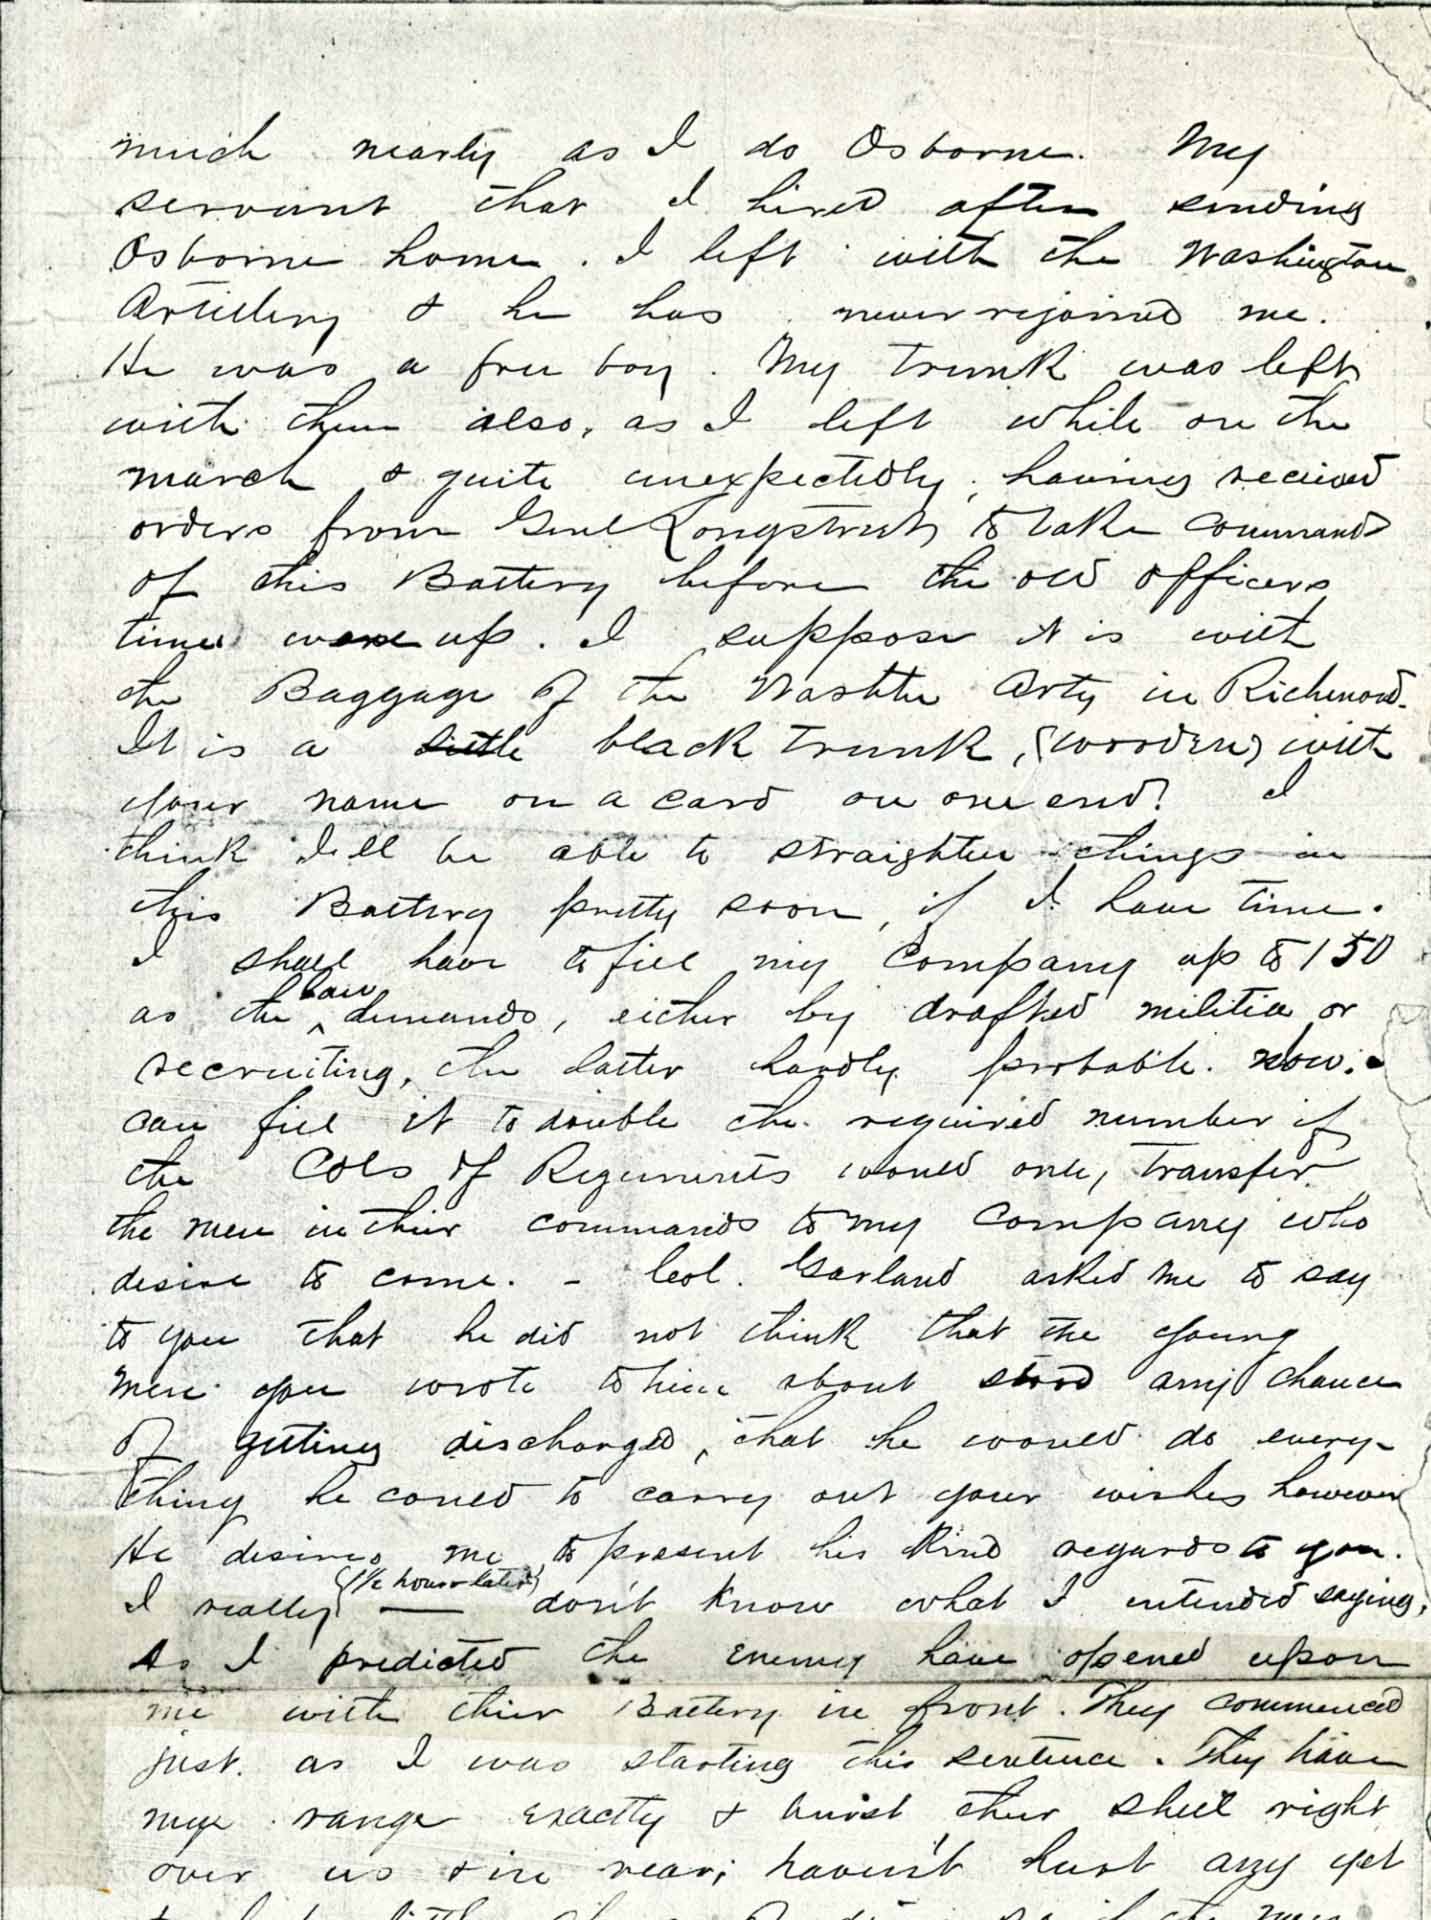 much nearly as I do Osborne. My
servant that I hired after sending
Osborne home. I left with the Washington
Artillery & he has never rejoined me.
He was a free boy. My trunk was left
with them also, as I left while on the
march & quite unexpectedly, having recieved
orders from Genl Longstreet to take command
of this Battery before the old officers
time were up. I suppose it is with
the Baggage of the Washtn Arty in Richmond.
It is a little black trunk, (wooden) with
your name on a card on one end. I
think I'll be able to straighten things in
this Battery pretty soon, if I have time.
I shall have to fill my Company up to 150
as the law demands, either by drafted militia or
recruiting, the latter hardly probable. now.
can fill it to double the required number if
the Cols of Regiments would only transfer
the men in their commands to my Company who
desire to come. - Col. Garland asked me to say
to you that he did not think that the young
men you wrote to him about stood any chance
of getting discharged, that he would do every-
thing he could to carry out your wishes however
He desires me to present his kind regards to you.
I really (1/2 hour later) — don't know what I intended saying,
As I predicted the enemy have opened upon
me with their Battery in front. They commenced
just as I was starting this sentence. They have
my range exactly & burst their shell right
over us & in rear; haven't hurt any yet